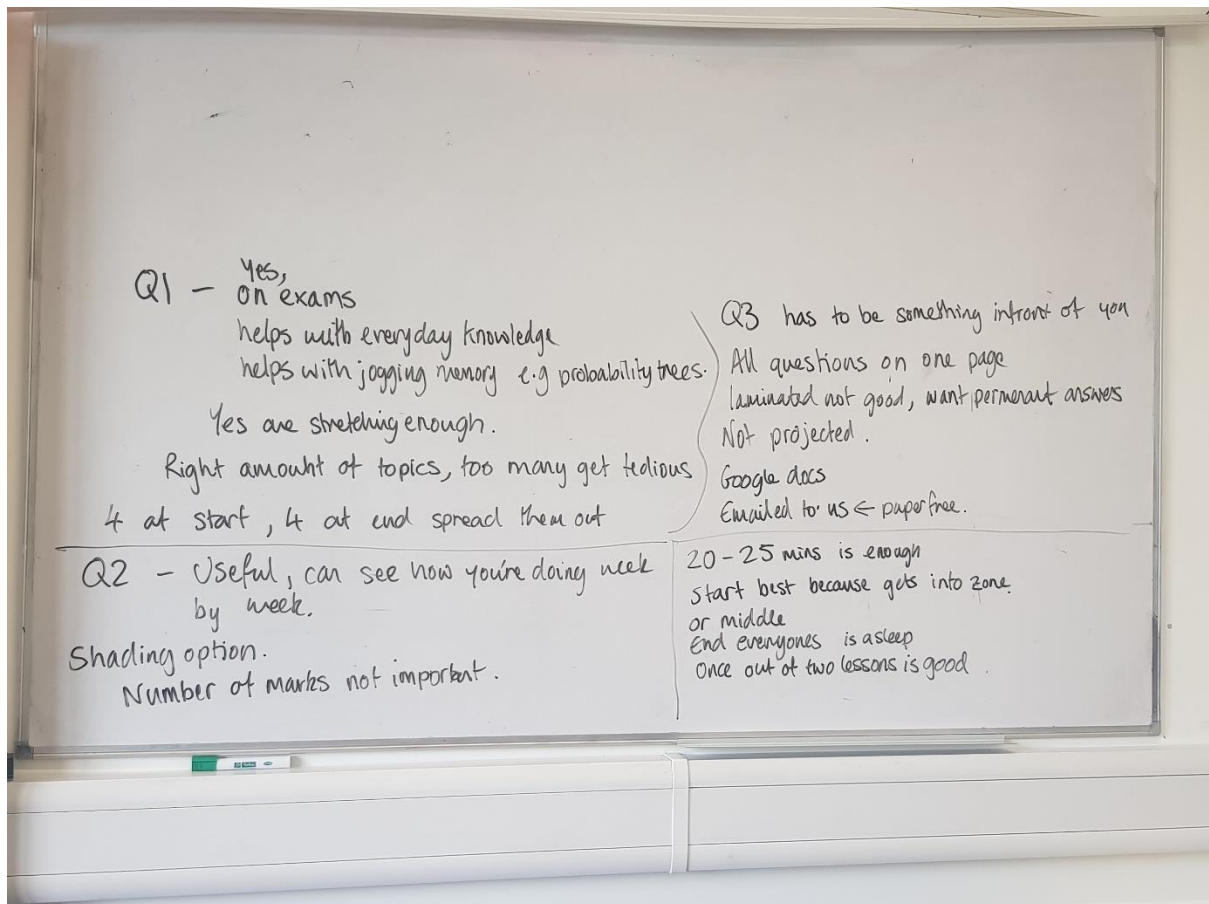 Q1 - Yes,
on exams
helps with everyday knowledge
helps with jogging memory e.g probability trees.
Yes are stretching enough.
Right amount of topics, too many get tedious
4 at start, 4 at end spread them out
Q2 - Useful, can see how you're doing week
by week.
Shading option.
Number of marks not important.
Q3 has to be something infront of you
All questions on one page
laminated not good, want permenant answers
Not projected.
Google docs
Emailed to us ← paperfree.
20-25 mins is enough
Start best because gets into zone.
or middle
End everyones is asleep
Once out of two lessons is good.